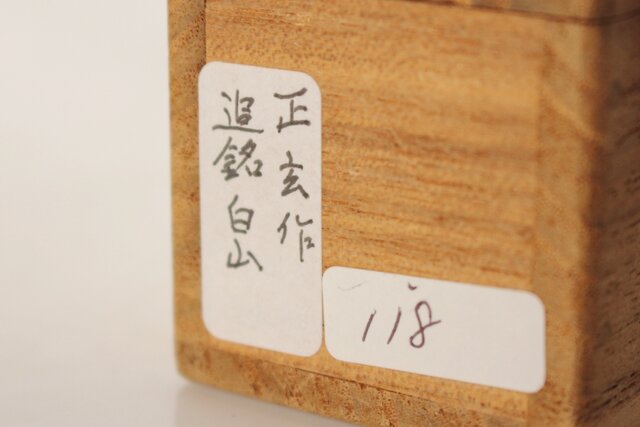 正玄作
追銘 白山
118